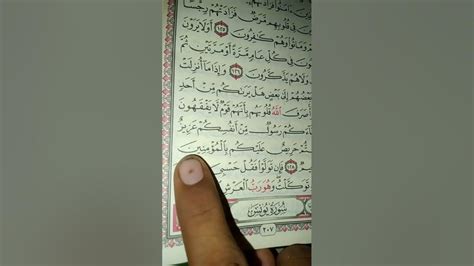 فِي قُلُوبِهِم مَّرَضٌ فَزَادَتْهُمْ رِجْسًا
وَمَاتُوا۟ وَهُمْ كَٰفِرُونَ ١٢٥ أَوَلَا يَرَوْنَ
فِي كُلِّ عَامٍ مَّرَّةً أَوْ مَرَّتَيْنِ ثُمَّ
وَلَا هُمْ يَذَّكَّرُونَ ١٢٦ وَإِذَا مَآ أُنزِلَتْ
بَعْضُهُمْ إِلَىٰ بَعْضٍ هَلْ يَرَىٰكُم مِّنْ أَحَدٍ
صَرَفَ ٱللَّهُ قُلُوبَهُم بِأَنَّهُمْ قَوْمٌ لَّا يَفْقَهُونَ
جَآءَكُمْ رَسُولٌ مِّنْ أَنفُسِكُمْ عَزِيزٌ
حَرِيصٌ عَلَيْكُم بِٱلْمُؤْمِنِينَ
١٢٨ فَإِن تَوَلَّوْا۟ فَقُلْ حَسْبِيَ
تَوَكَّلْتُ وَهُوَ رَبُّ ٱلْعَرْشِ
سُورَةُ يُونُسَ
٢٠٧